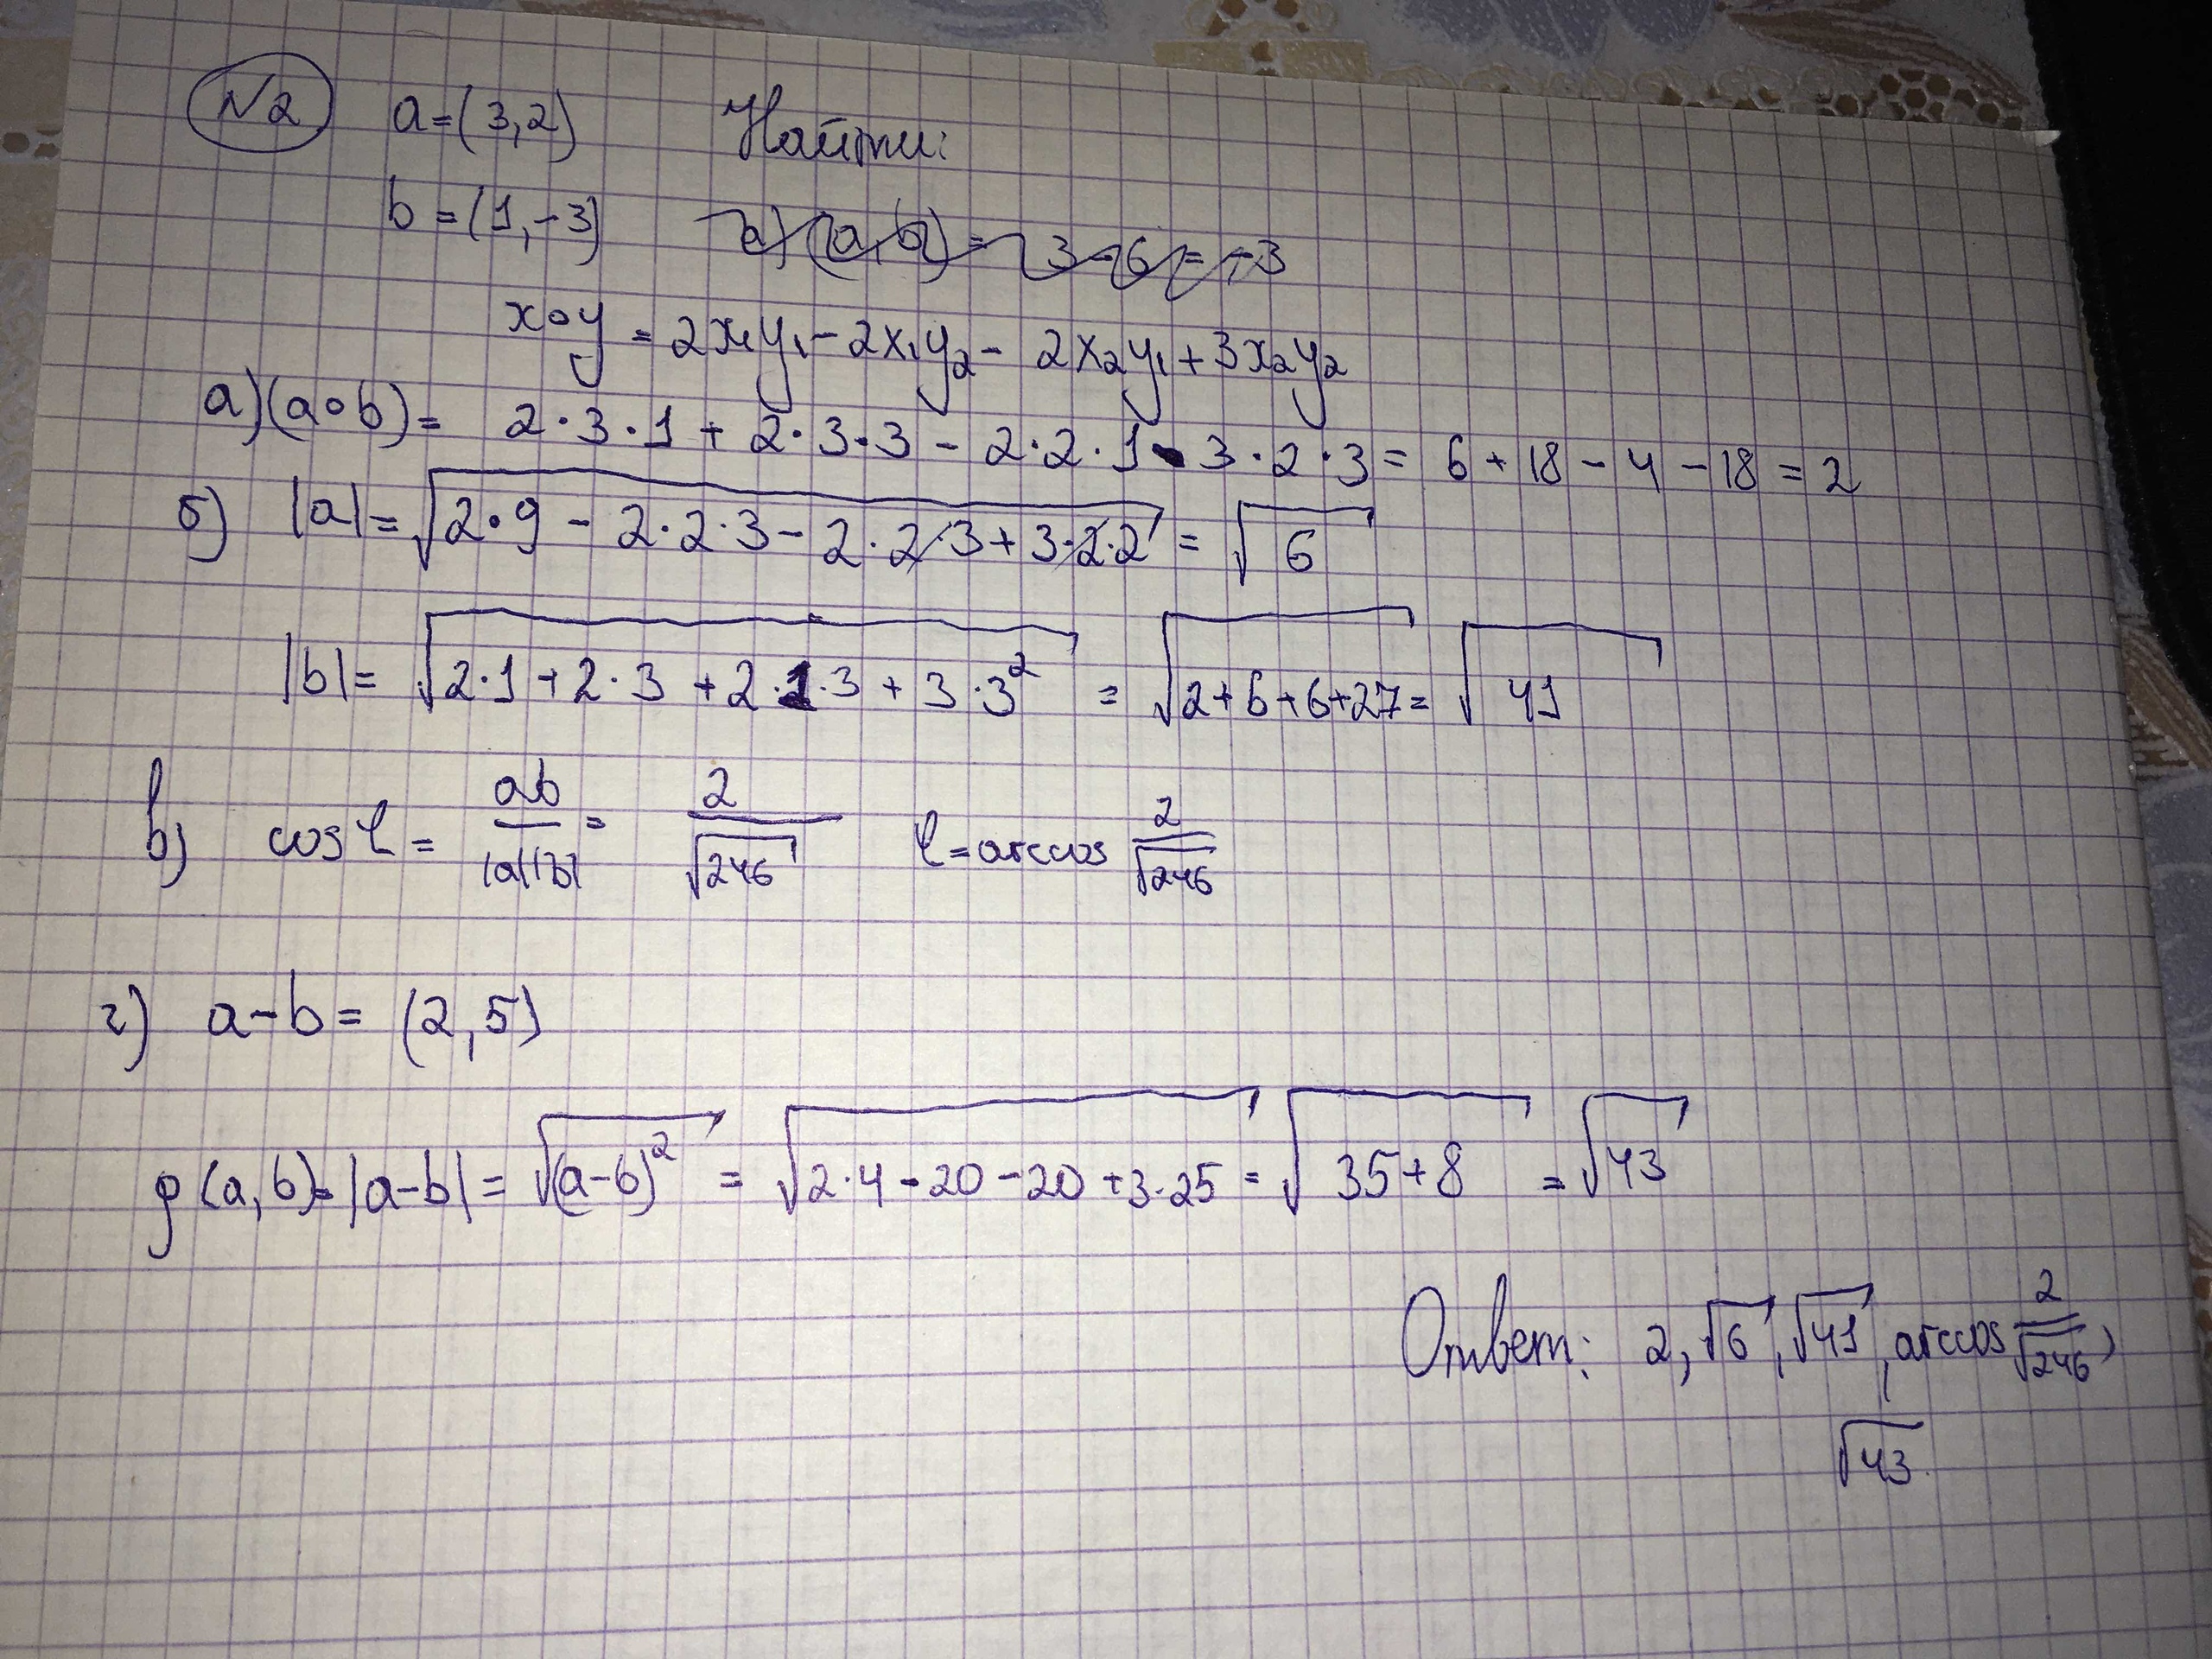 N2 a=(3,2) Найти:
b=(1,-3) a) (a,b) = 3-6 = -3
x∘y = 2x₁y₁ - 2x₁y₂ - 2x₂y₁ + 3x₂y₂
a) (a∘b) = 2·3·1 + 2·3·3 - 2·2·1 - 3·2·3 = 6 + 18 - 4 - 18 = 2
б) |a| = √(2·9 - 2·2·3 - 2·2·3 + 3·2·2) = √6
|b| = √(2·1 + 2·3 + 2·1·3 + 3·3²) = √(2+6+6+27) = √41
в) cos φ = ab/|a||b| = 2/√246 φ = arccos 2/√246
г) a-b = (2,5)
ρ(a,b) = |a-b| = √(a-b)² = √(2·4 - 20 - 20 + 3·25) = √(35+8) = √43
Ответ: 2, √6, √41, arccos 2/√246,
√43